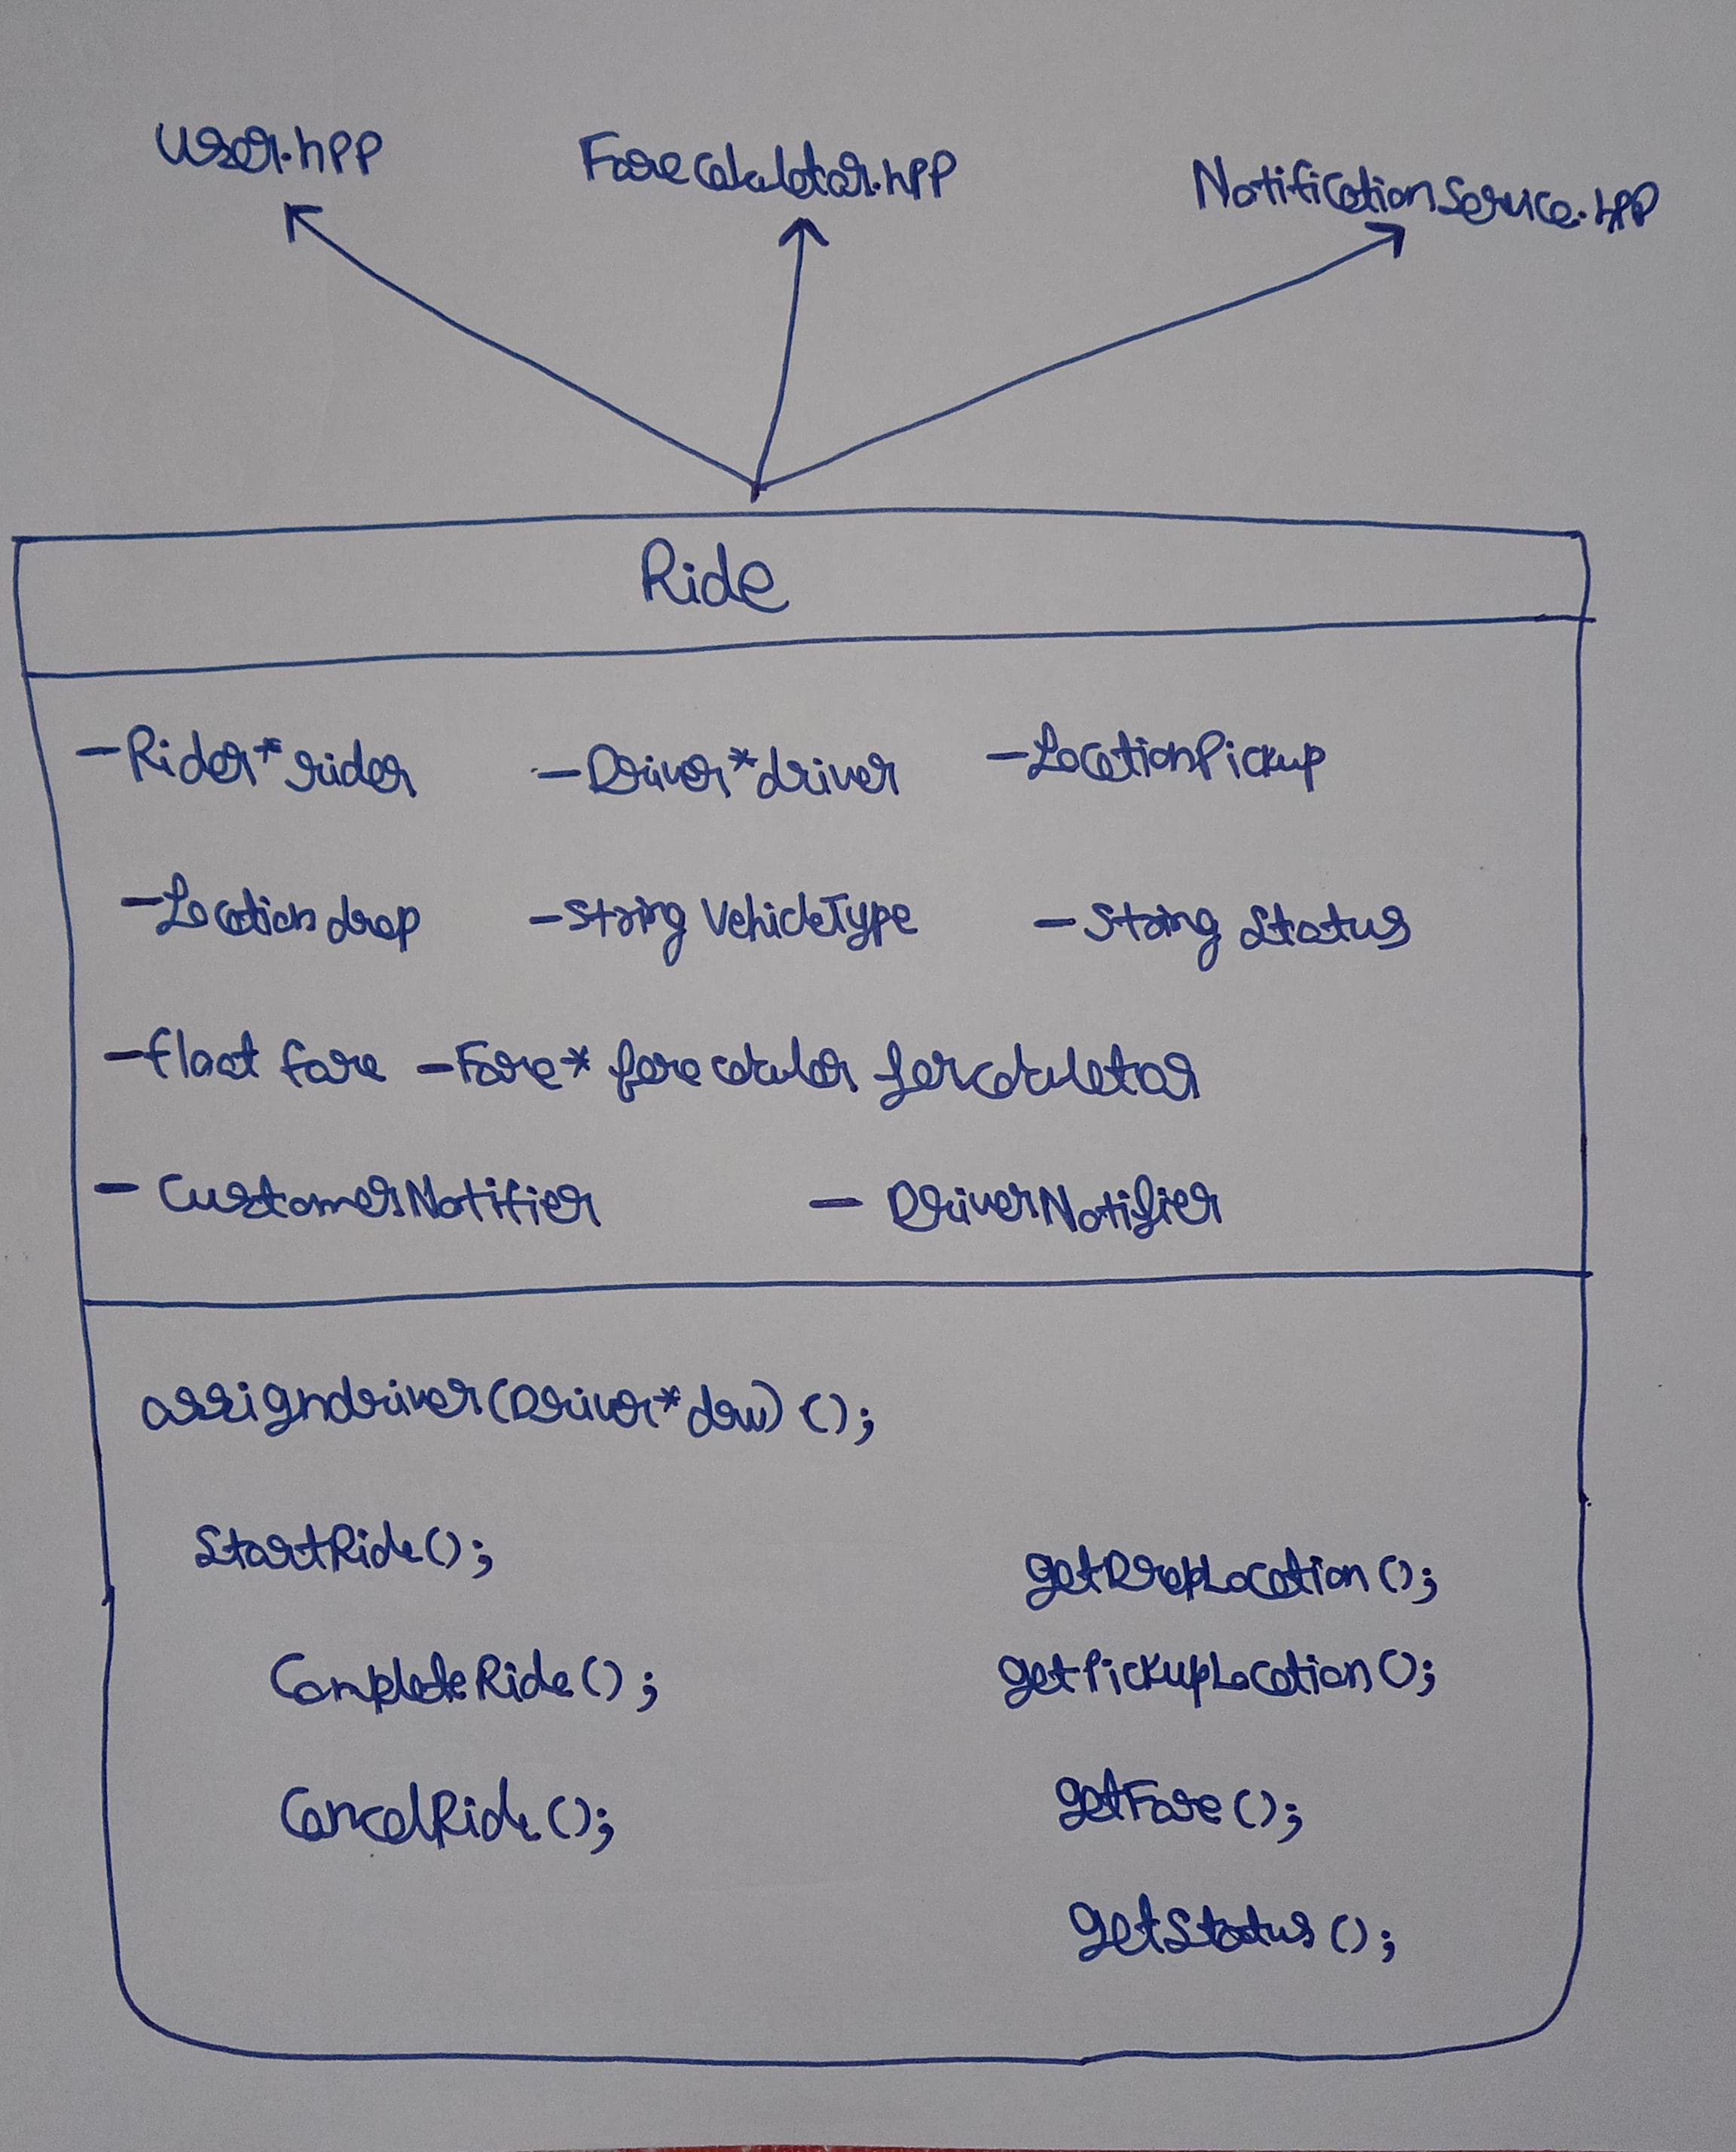 User.hpp Farecalculator.hpp NotificationService.hpp
Ride
-Rider* rider -Driver* driver -LocationPickup
-Location drop -String VehicleType -String Status
-float fare -Fare* fare
- CustomerNotifier - DriverNotifier
assigndriver(Driver* driv) ();
StartRide();
getDropLocation();
CompleteRide();
getPickupLocation();
CancelRide();
getFare();
getStatus();